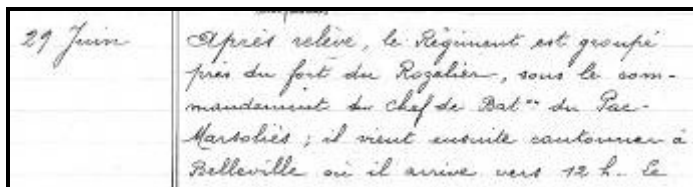 29 Juin
Après relève, le Régiment est groupé
près du fort du Rozelier, sous le com-
mandement du Chef de Bat.on du Pac-
Marsoliès ; il vient ensuite cantonner à
Belleville où il arrive vers 12 h. Le